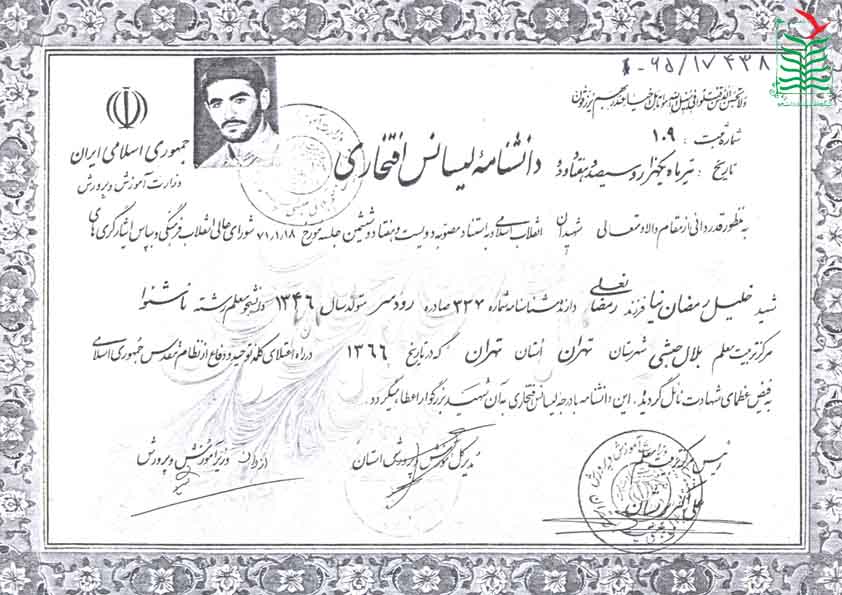 ۱-۶۵/۱۷۴۳۸
ولا تحسبن الذین قتلوا فی سبیل الله امواتا بل احیاء عند ربهم یرزقون
جمهوری اسلامی ایران
وزارت آموزش و پرورش
شماره ثبت : ۱۰۹
تاریخ : تیرماه یکهزار و سیصد و هفتاد و دو
دانشنامهٔ لیسانس افتخاری
به منظور قدردانی از مقام والا و متعالی شهیدان انقلاب اسلامی و به استناد مصوبه دویست و هفتاد و ششمین جلسه مورخ ۷۱,۱,۱۸ شورای عالی انقلاب فرهنگی و بپاس ایثارگری های
شهید خلیل رمضان نیا فرزند رمضانعلی دارنده شناسنامه شماره ۳۲۷ صادره رودسر متولد سال ۱۳۴۶ دانشجو معلم رشته ناشنوا
مرکز تربیت معلم بلال حبشی شهرستان تهران استان تهران که در تاریخ ۱۳۶۶ در راه اعتلای کلمه توحید و دفاع از نظام مقدس جمهوری اسلامی
به فیض عظمای شهادت نائل گردیدند. این دانشنامه با درجه لیسانس افتخاری به آن شهید بزرگوار اعطا میگردد.
رئیس مرکز تربیت معلم
مدیر کل آموزش و پرورش استان
از طرف وزیر آموزش و پرورش